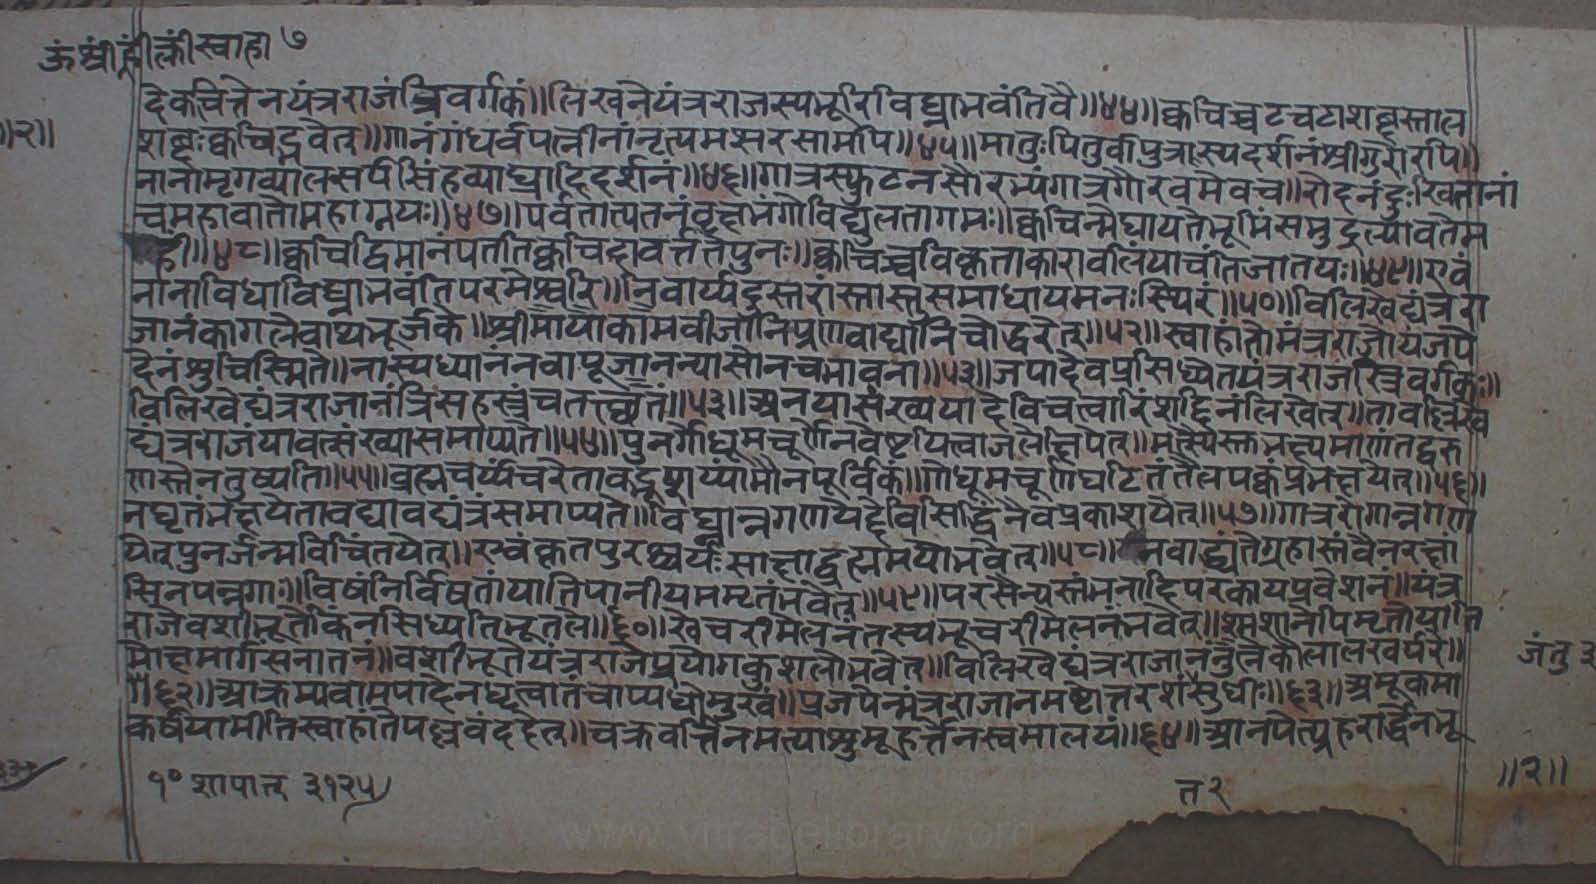 ॐ श्रीं ह्रीं क्लीं स्वाहा ७
देकचित्तेनयंत्रराजंत्रिवर्गकं॥लिखनेयंत्रराजस्यभूरिविघ्नाभवंतिवै॥४४॥क्वचिच्चटचटाशब्दस्ताल
॥२॥
शब्दःक्वचिद्भवेत्॥गानंगंधर्वपत्नीनांनृत्यमप्सरसामपि॥४५॥मातुःपितुर्वापुत्रास्यदर्शनंश्रीगुरोरपि॥
नानामृगव्यालसर्पसिंहव्याघ्रादिदर्शनं॥४६॥गात्रस्फुटनसौरभ्यंगात्रगौरवमेवच॥रोदनंदुःखितानां
चमहावातोमहाग्नयः॥४७॥पर्वतात्पतनंवृक्षभंगोविद्युल्लतागमः॥क्वचिन्मेघायतेभूमिंसमुद्रप्लावतेम
ही॥४८॥क्वचिद्विमानंपततिक्वचिदावर्त्ततेपुनः॥क्वचिच्चविकृताकाराबलिंयाचंतिजातयः॥४९॥एवं
नानाविधाविघ्नाभवंतिपरमेश्वरि॥निवार्य्यदुस्तरांस्तांस्तुसमाधायमनःस्थिरं॥५०॥विलिखेद्यंत्ररा
जानंकागलेवाथभूर्जके॥श्रीमायाकामबीजानिप्रणवाद्यानिचोद्धरेत्॥५१॥स्वाहांतोमंत्रराजोयंजपे
देनंशुचिस्मिते॥नास्यध्यानंनवापूजानन्यासोनचभावना॥५२॥जपादेवप्रसिध्येतयंत्रराजस्त्रिवर्गकः॥
विलिखेद्यंत्रराजानंत्रिसहस्रंचतच्छतं॥५३॥अनयासंख्ययादेविचत्वारिंशद्दिनंलिखेत्॥तावल्लिखे
द्यंत्रराजंयावत्संख्यासमाप्यते॥५४॥पुनर्गोधूमचूर्णेनवेष्टयित्वाजलेक्षिपेत्॥मत्स्यैस्तत्भक्ष्यमाणंतद्वरु
णस्तेनतुष्यति॥५५॥ब्रह्मचर्य्यंचरेतावद्भूशय्यामौनपूर्वकं॥गोधूमचूर्णघटितंतैलपक्वंप्रभक्षयेत्॥५६॥
नघृतंभक्षयेतावद्यावद्यंत्रंसमाप्यते॥विघ्नान्नगणयेद्देविसिद्धिंनैवप्रकाशयेत्॥५७॥गात्ररोगान्नगण
येत्पुनर्जन्मविचिंतयेत्॥एवंकृतपुरश्चर्यःसाक्षाद्ब्रह्ममयोभवेत्॥५८॥नबाध्यंतेग्रहास्तंवैनरक्षां
सिनपन्नगाः॥विषंनिर्विषतांयातिपानीयममृतंभवेत्॥५९॥परसैन्यस्तंभनादिपरकायप्रवेशनं॥यंत्र
राजेवशीभूतेकिंनसिध्यतिभूतले॥६०॥खेचरीमेलनंतस्यभूचरीमेलनंभवेत्॥श्मशानेपिमृतोयाति
मोक्षमार्गसनातनं॥वशीभूतेयंत्रराजेप्रयोगकुशलोभवेत्॥विलिखेद्यंत्रराजानंनुत्नेकौलालखर्परे॥
जंतु ३
॥६२॥आक्रम्यवामपादेनधृत्वातंचाप्यधोमुखं॥प्रजपेन्मंत्रराजानमष्टोत्तरशंसुधीः॥६३॥अमूकमा
कर्षयामीतिस्वाहांतेपल्लवंददेत्॥चक्रवर्त्तिनमत्याशुमूहर्त्तेनस्वमालयं॥६४॥आनयेत्प्रहरार्द्धेनभू
१० शापात्त ३१२५
त २
॥२॥
www.vitragelibrary.org